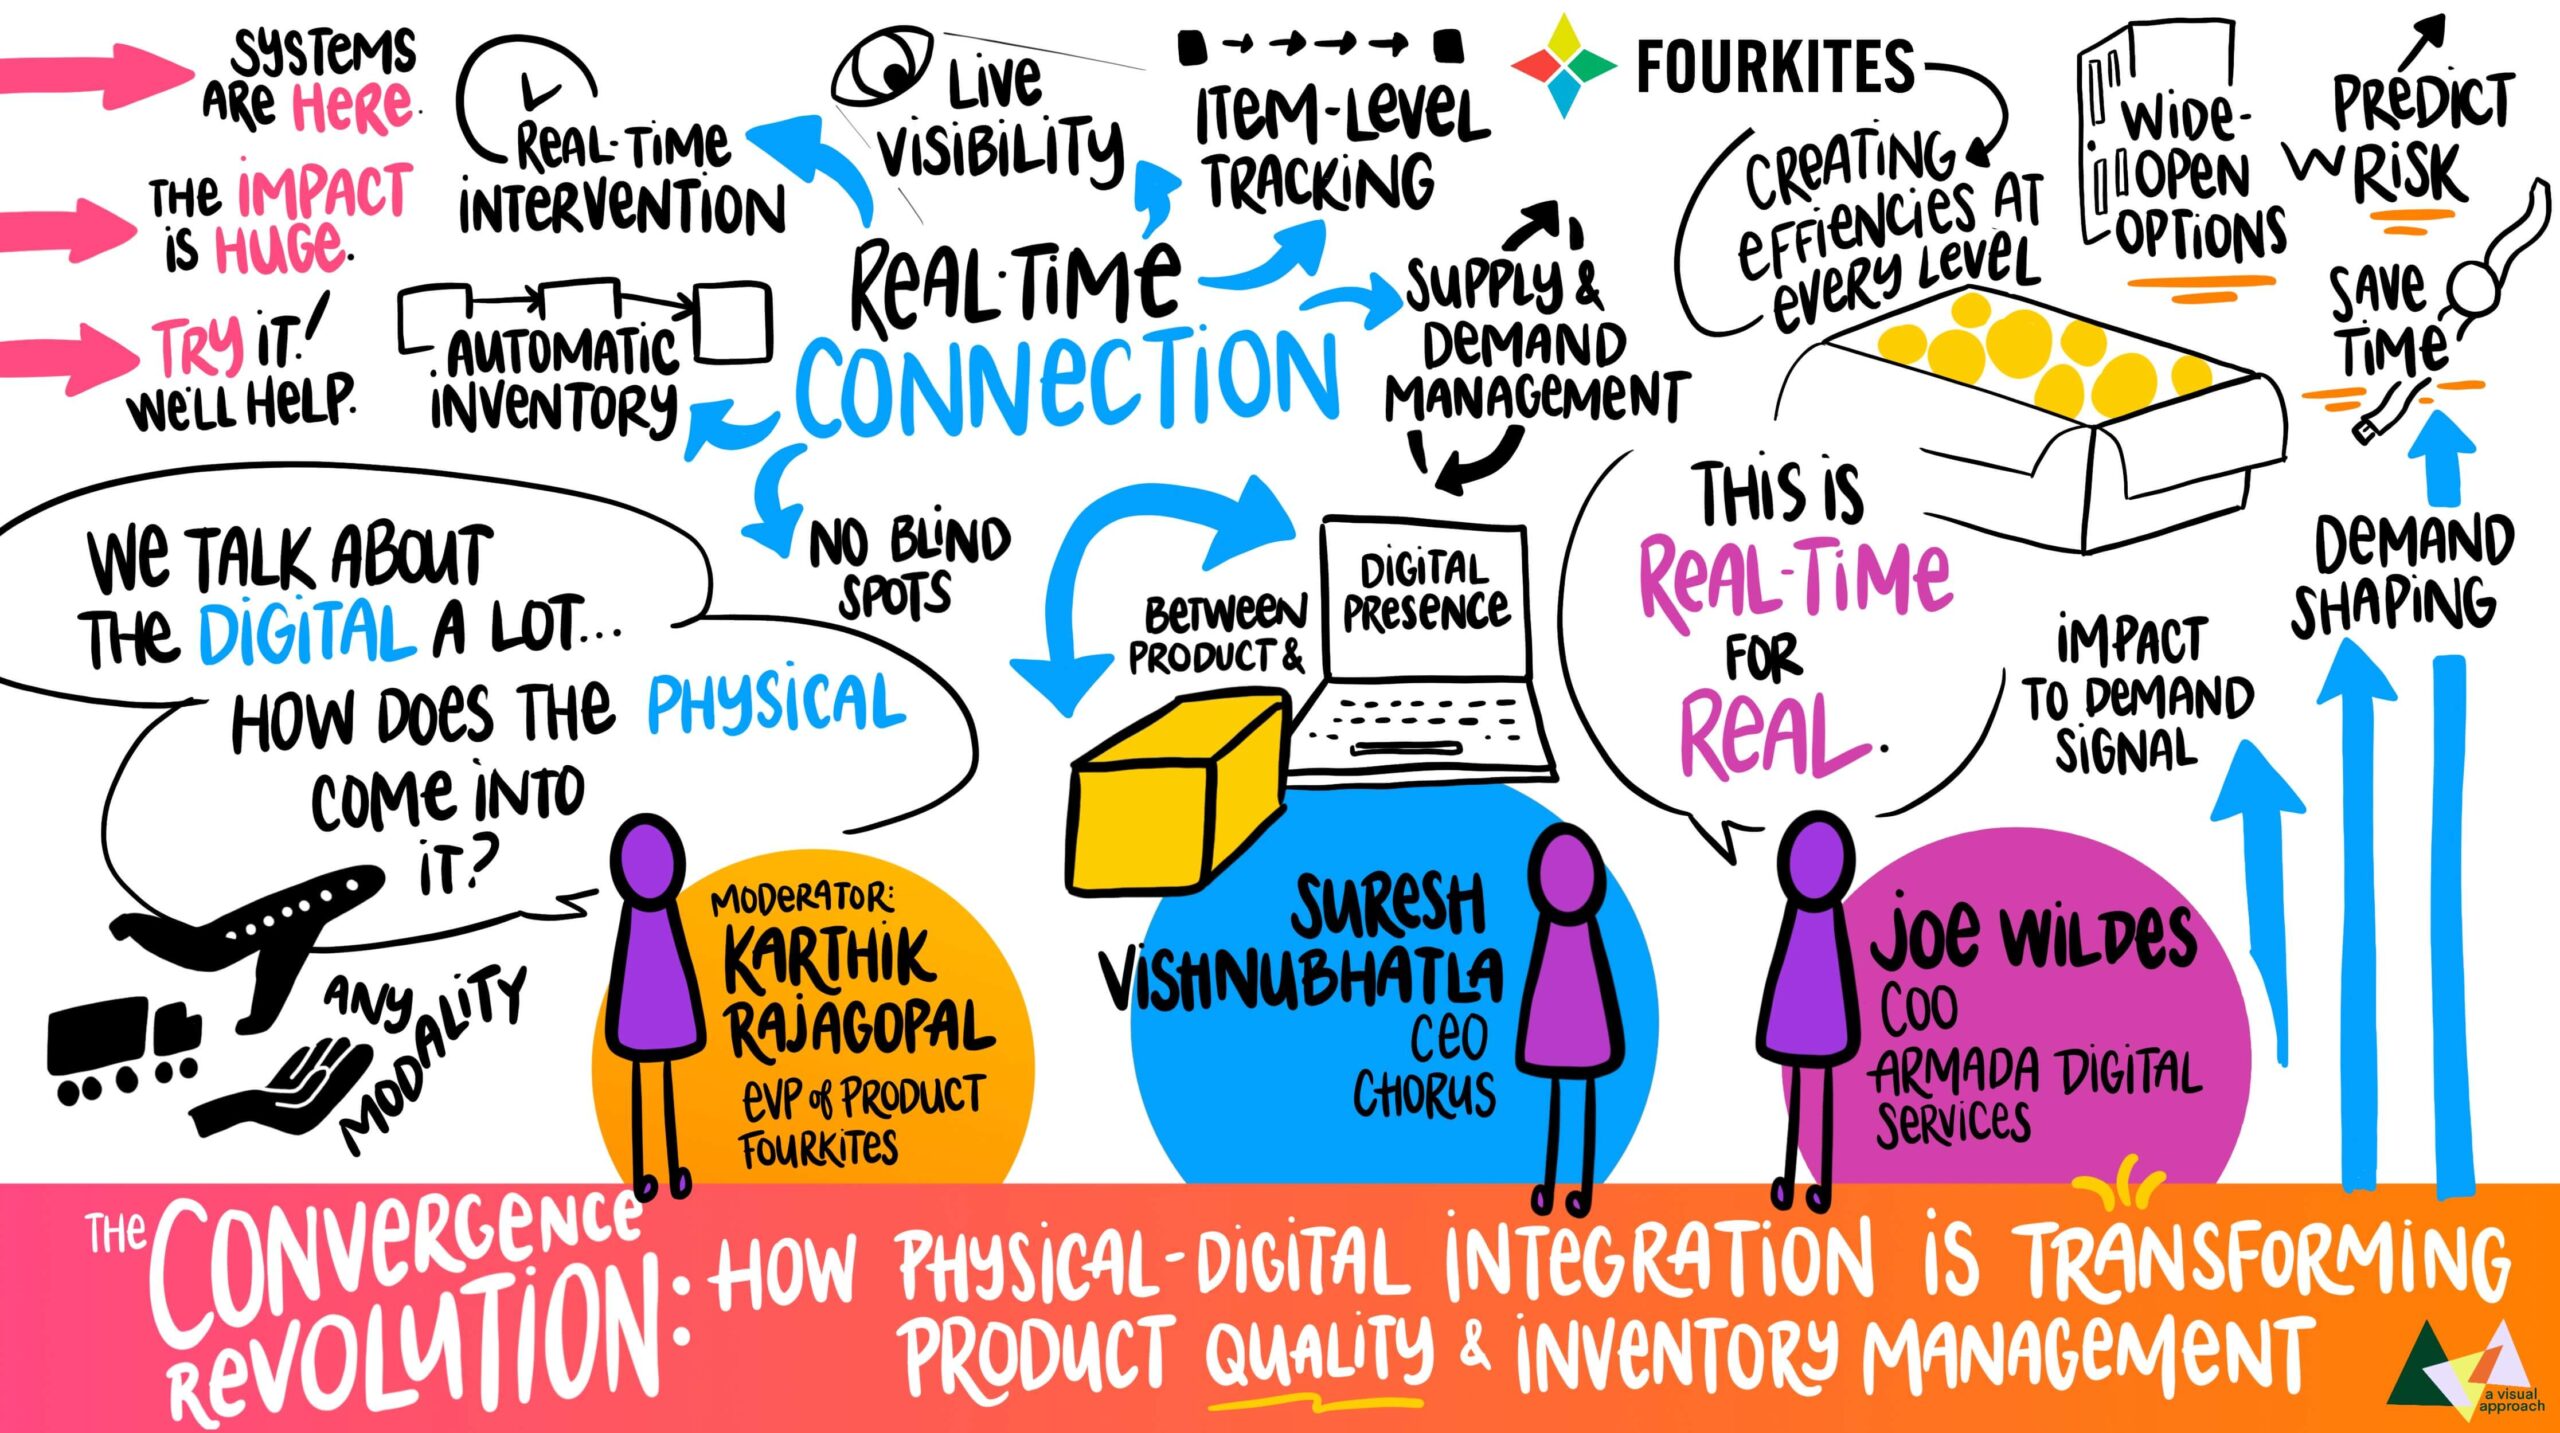 SYSTEMS
ARE HERE.
THE IMPACT
IS HUGE.
TRY IT!
WE'LL HELP.
REAL-TIME
INTERVENTION
AUTOMATIC
INVENTORY
LIVE
VISIBILITY
ITEM-LEVEL
TRACKING
REAL-TIME
CONNECTION
SUPPLY &
DEMAND
MANAGEMENT
NO BLIND
SPOTS
FOURKITES
CREATING
EFFIENCIES AT
EVERY LEVEL
WIDE-
OPEN
OPTIONS
PREDICT
RISK
SAVE
TIME
DEMAND
SHAPING
IMPACT
TO DEMAND
SIGNAL
WE TALK ABOUT
THE DIGITAL A LOT...
HOW DOES THE PHYSICAL
COME INTO
IT?
ANY
MODALITY
BETWEEN
PRODUCT &
DIGITAL
PRESENCE
THIS IS
REAL-TIME
FOR
REAL.
MODERATOR:
KARTHIK
RAJAGOPAL
EVP of PRODUCT
FOURKITES
SURESH
VISHNUBHATLA
CEO
CHORUS
JOE WILDES
COO
ARMADA DIGITAL
SERVICES
THE CONVERGENCE
REVOLUTION:
HOW PHYSICAL-DIGITAL INTEGRATION IS TRANSFORMING
PRODUCT QUALITY & INVENTORY MANAGEMENT
a visual
approach